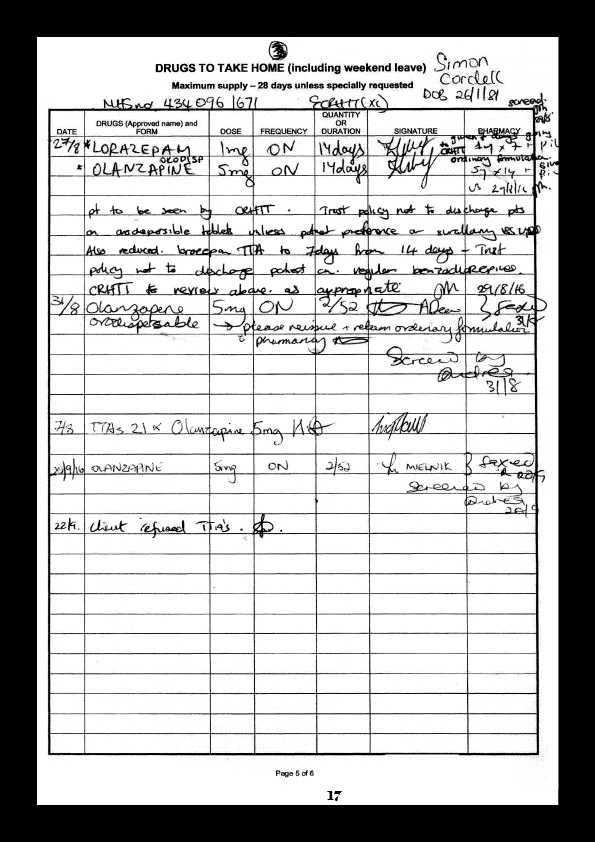 DRUGS TO TAKE HOME (including weekend leave)
Simon
Cordell
Maximum supply – 28 days unless specially requested
DOB 26/1/81
NHS no 434 096 1671
SCRHTT (XL)
screened
DATE
DRUGS (Approved name) and FORM
DOSE
FREQUENCY
QUANTITY OR DURATION
SIGNATURE
PHARMACY
27/8 * LORAZEPAM 1mg ON 14days
* OLANZAPINE ORODISP 5mg ON 14days
ordinary formulation
pt to be seen by CRHTT. Trust policy not to discharge pts
on orodispersible tablets unless patient preference or
Also reduced. TTA to 7days from 14 days – Trust
policy not to discharge patient on regular benzodiazepines.
CRHTT to review above as appropriate 29/8/16
31/8 Olanzapine 5mg ON 2/52
orodispersable → please reissue + return ordinary formulation
to pharmacy
Screened by
31/8
7/8 TTAs 21 x Olanzapine 5mg
20/9/16 OLANZAPINE 5mg ON 2/52 MIELNIK } faxed
20/9
Screened by
20/9
22/9. Client refused TTA's.
Page 5 of 6
17